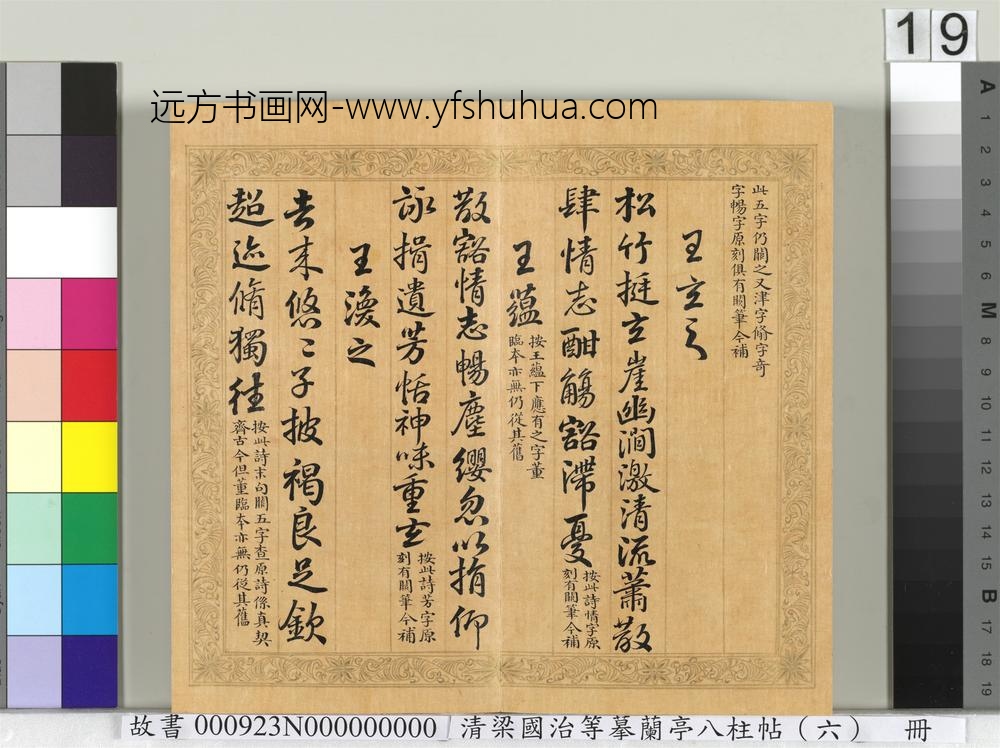 19
远方书画网-www.yfshuhua.com
此五字仍闕之又津字脩字奇
字暢字原刻俱有闕筆今補
王玄之
松竹挺玄崖幽澗激清流蕭散
肆情志酣觴豁滯憂
按此詩情字原
刻有闕筆今補
王蘊
按王蘊下應有之字董
臨本亦無仍從其舊
散豁情志暢塵纓忽以捐仰
詠揖遺芳恬神味重玄
按此詩芳字原
刻有闕筆今補
王渙之
去来悠々子披褐良足欽
超迹脩獨往
按此詩末句闕五字查原詩係真契
齊古今但董臨本亦無仍從其舊
A 1 2 3 4 5 6 M 8 9 10 11 12 13 14 15 B 17 18 19
故書 000923N000000000 清梁國治等摹蘭亭八柱帖（六） 冊